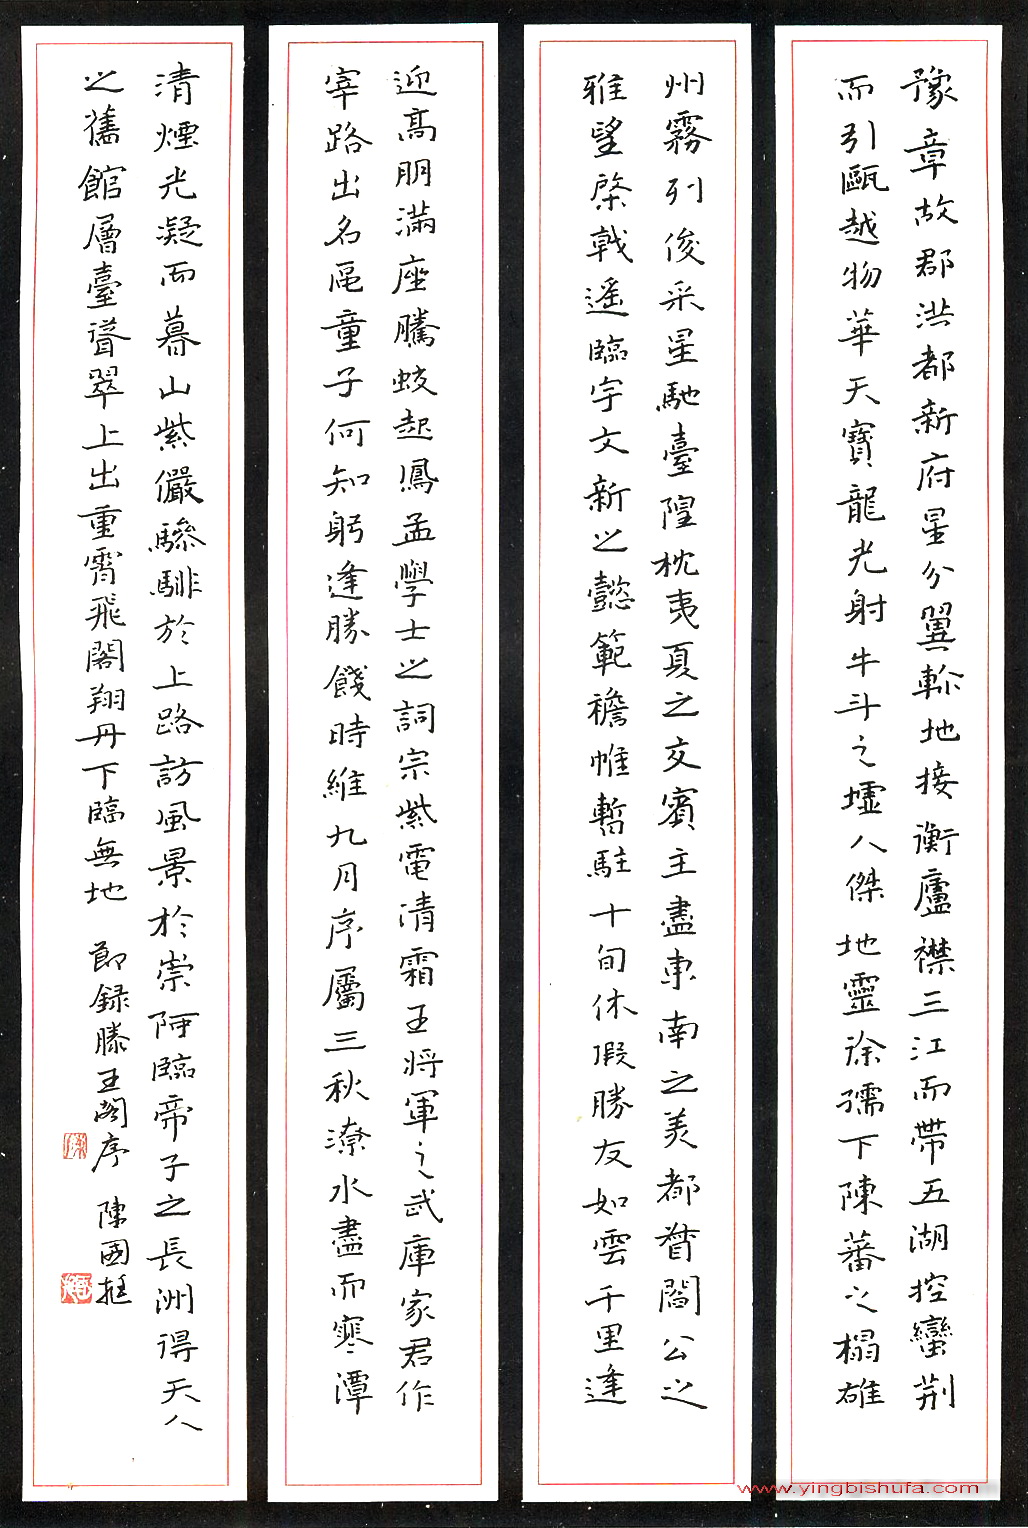 豫章故郡洪都新府星分翼軫地接衡廬襟三江而帶五湖控蠻荆
而引甌越物華天寶龍光射牛斗之墟人傑地靈徐孺下陳蕃之榻雄
州霧列俊采星馳臺隍枕夷夏之交賓主盡東南之美都督閻公之
雅望棨戟遥臨宇文新之懿範襜帷暫駐十旬休假勝友如雲千里逢
迎髙朋滿座騰蛟起鳳孟學士之詞宗紫電清霜王將軍之武庫家君作
宰路出名區童子何知躬逢勝餞時維九月序屬三秋潦水盡而寒潭
清煙光凝而暮山紫儼驂騑於上路訪風景於崇阿臨帝子之長洲得天人
之舊館層臺聳翠上出重霄飛閣翔丹下臨無地 節録滕王閣序 陳國挺
www.yingbishufa.com